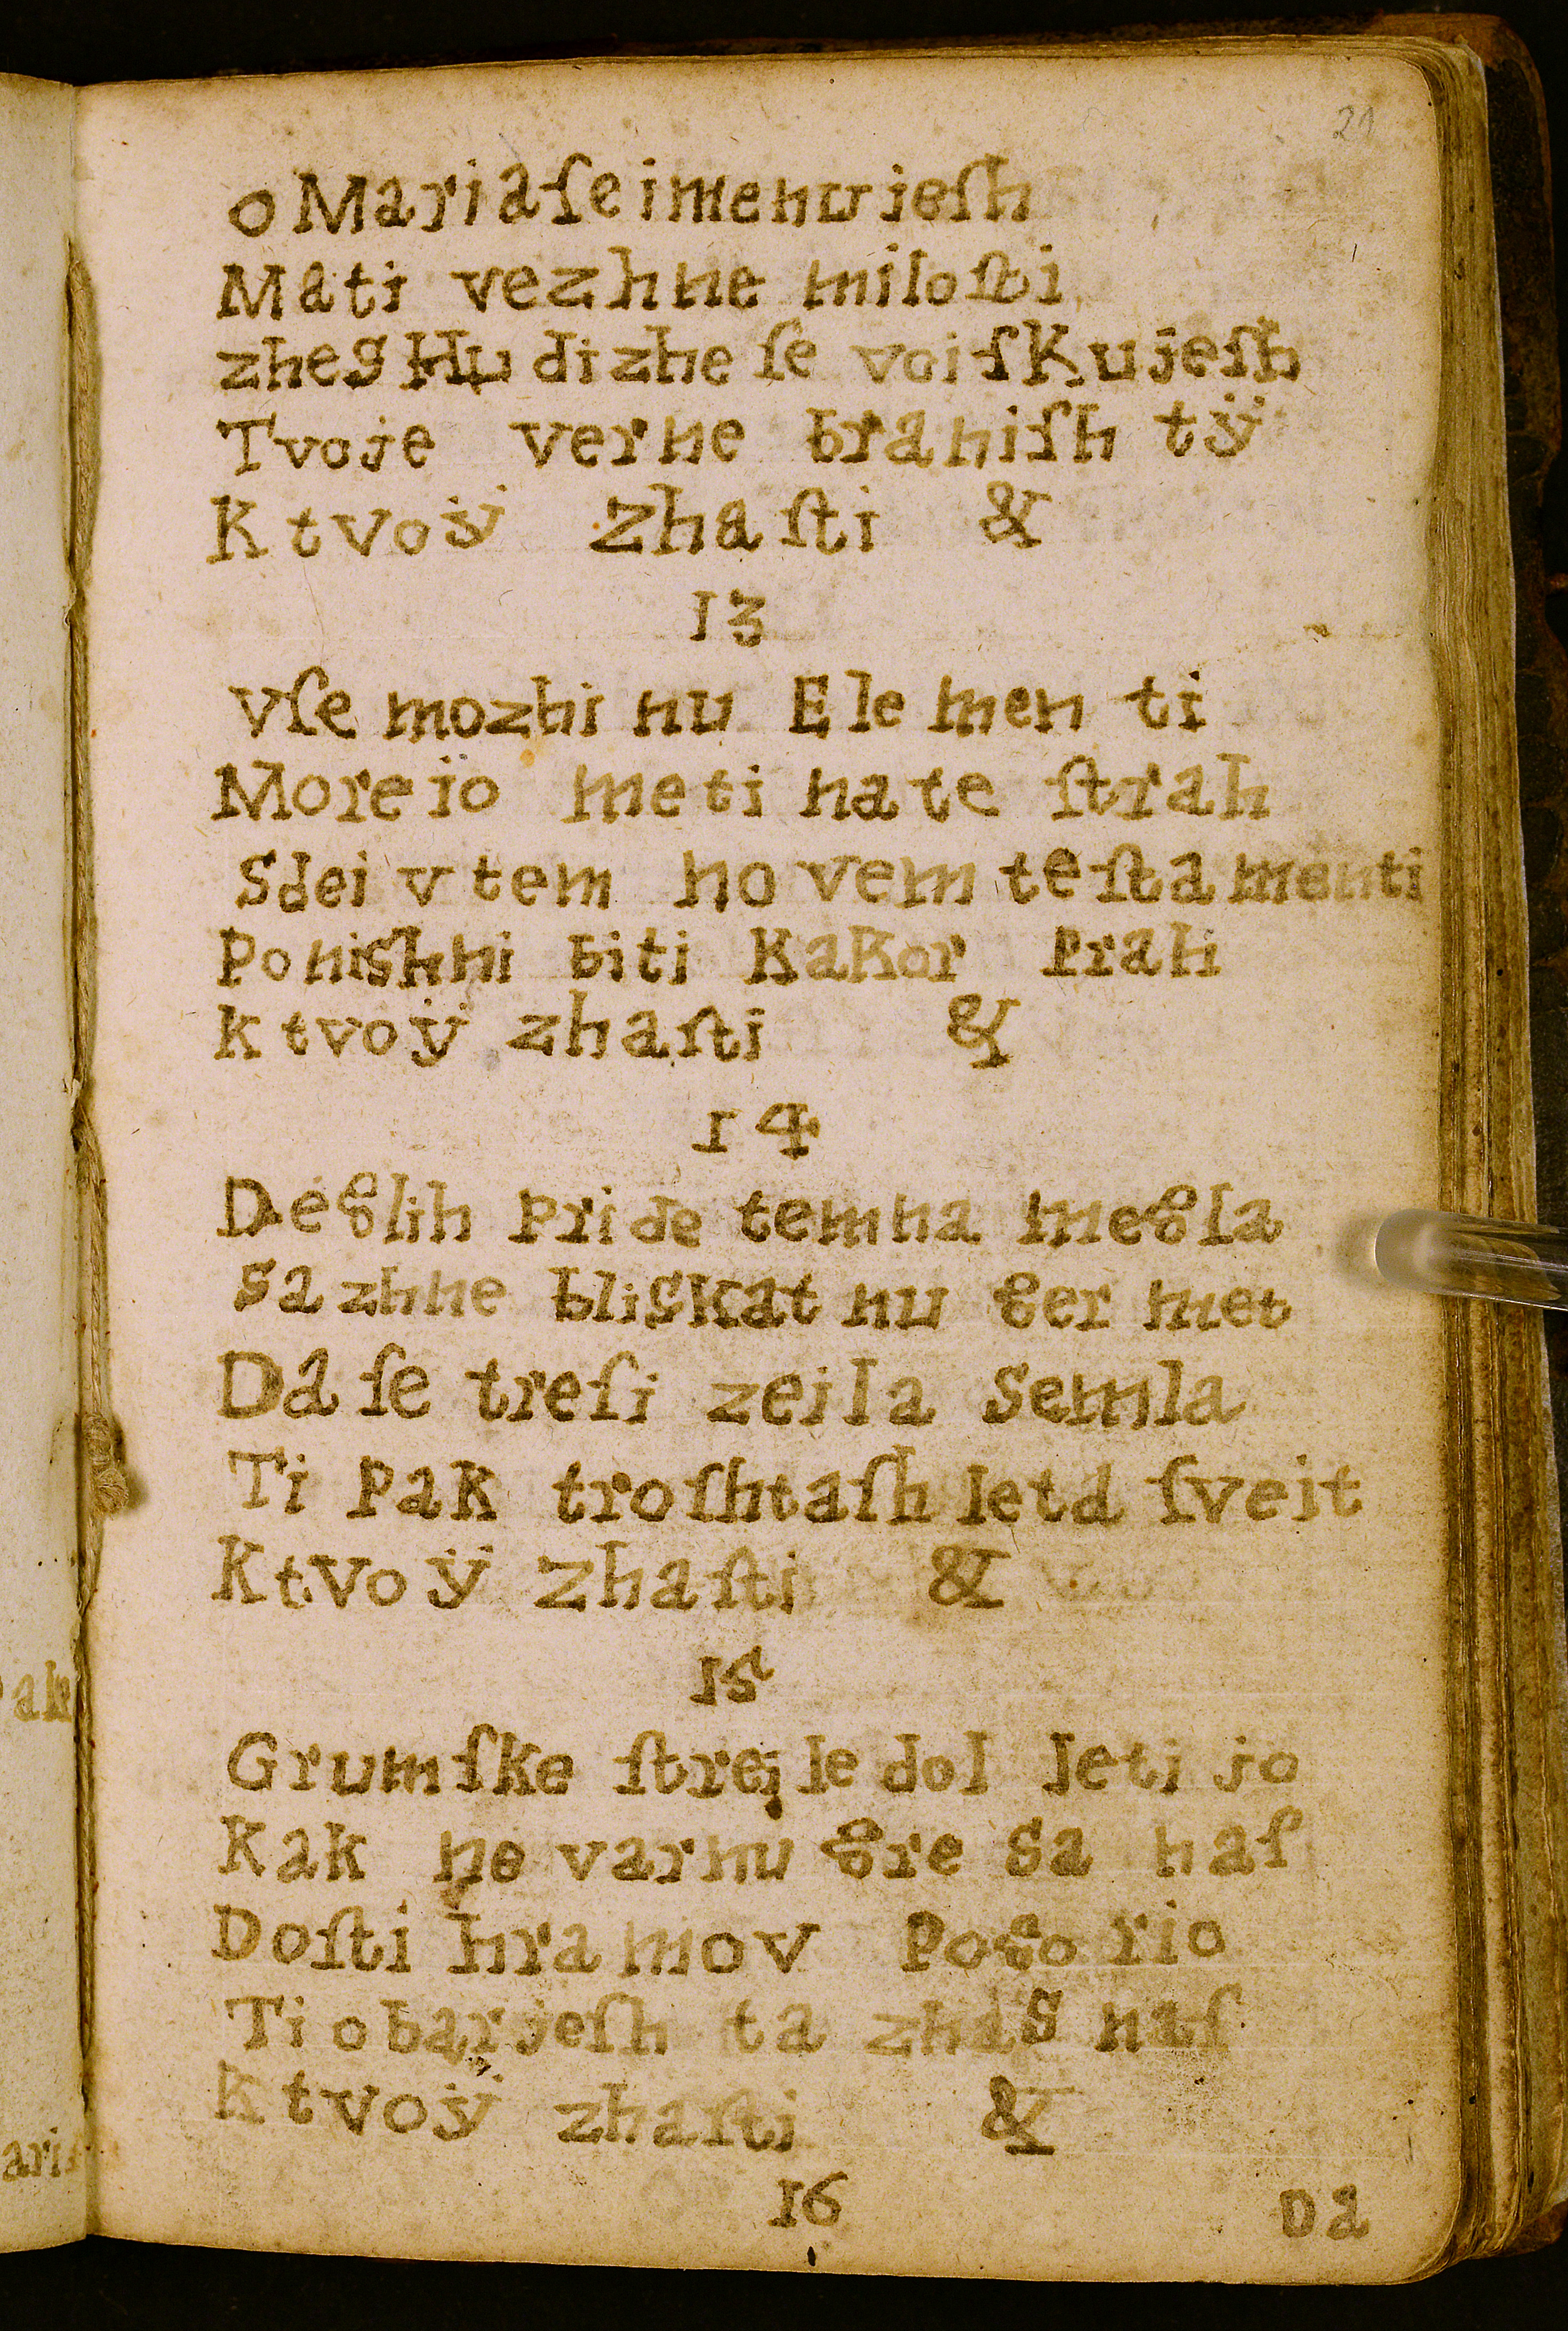 21
o Maria ſe imenujeſh
Mati vezhne miloſti
zhes Hudizhe ſe voiſkujeſh
Tvoje verne braniſh tÿ
K tvoÿ zhaſti &
13
vſe mozhi nu Elementi
Moreio meti na te ſtrah
Sdei v tem novem teſtamenti
Ponishni biti Kakor Prah
k tvoÿ zhaſti &
14
De8lih Pride temna me8la
Sazhne bliskat nu 8ermet
Da ſe treſi zeila Semla
Ti Pak troſhtaſh leta ſveit
K tvoÿ zhaſti &
15
Grumſke ſtreile dol leti jo
Kak nevarnu 8re Sa naſ
Doſti hramov Po8orio
Ti obarjeſh ta zhas naſ
K tvoÿ zhaſti &
16
Da